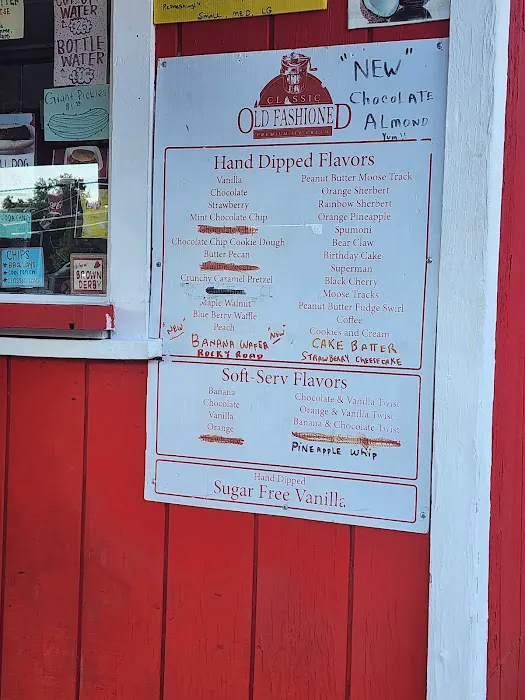 Refreshing!
SMALL, MED, LG
CUP OF
WATER
BOTTLE
WATER
Giant Pickles
CHIPS
BROWN
DERBY
CLASSIC
OLD FASHIONED
PREMIUM ICE CREAM
"NEW"
CHOCOLATE
ALMOND
Yum!!
Hand Dipped Flavors
Vanilla
Chocolate
Strawberry
Mint Chocolate Chip
Chocolate Chip
Chocolate Chip Cookie Dough
Butter Pecan
Crunchy Caramel Pretzel
Maple Walnut
Blue Berry Waffle
Peach
"NEW"
BANANA WAFER
ROCKY ROAD
Peanut Butter Moose Track
Orange Sherbert
Rainbow Sherbert
Orange Pineapple
Spumoni
Bear Claw
Birthday Cake
Superman
Black Cherry
Moose Tracks
Peanut Butter Fudge Swirl
Coffee
Cookies and Cream
"NEW"
CAKE BATTER
STRAWBERRY CHEESECAKE
Soft-Serv Flavors
Banana
Chocolate
Vanilla
Orange
Chocolate & Vanilla Twist
Orange & Vanilla Twist
Banana & Chocolate Twist
PINEAPPLE WHIP
Hand Dipped
Sugar Free Vanilla